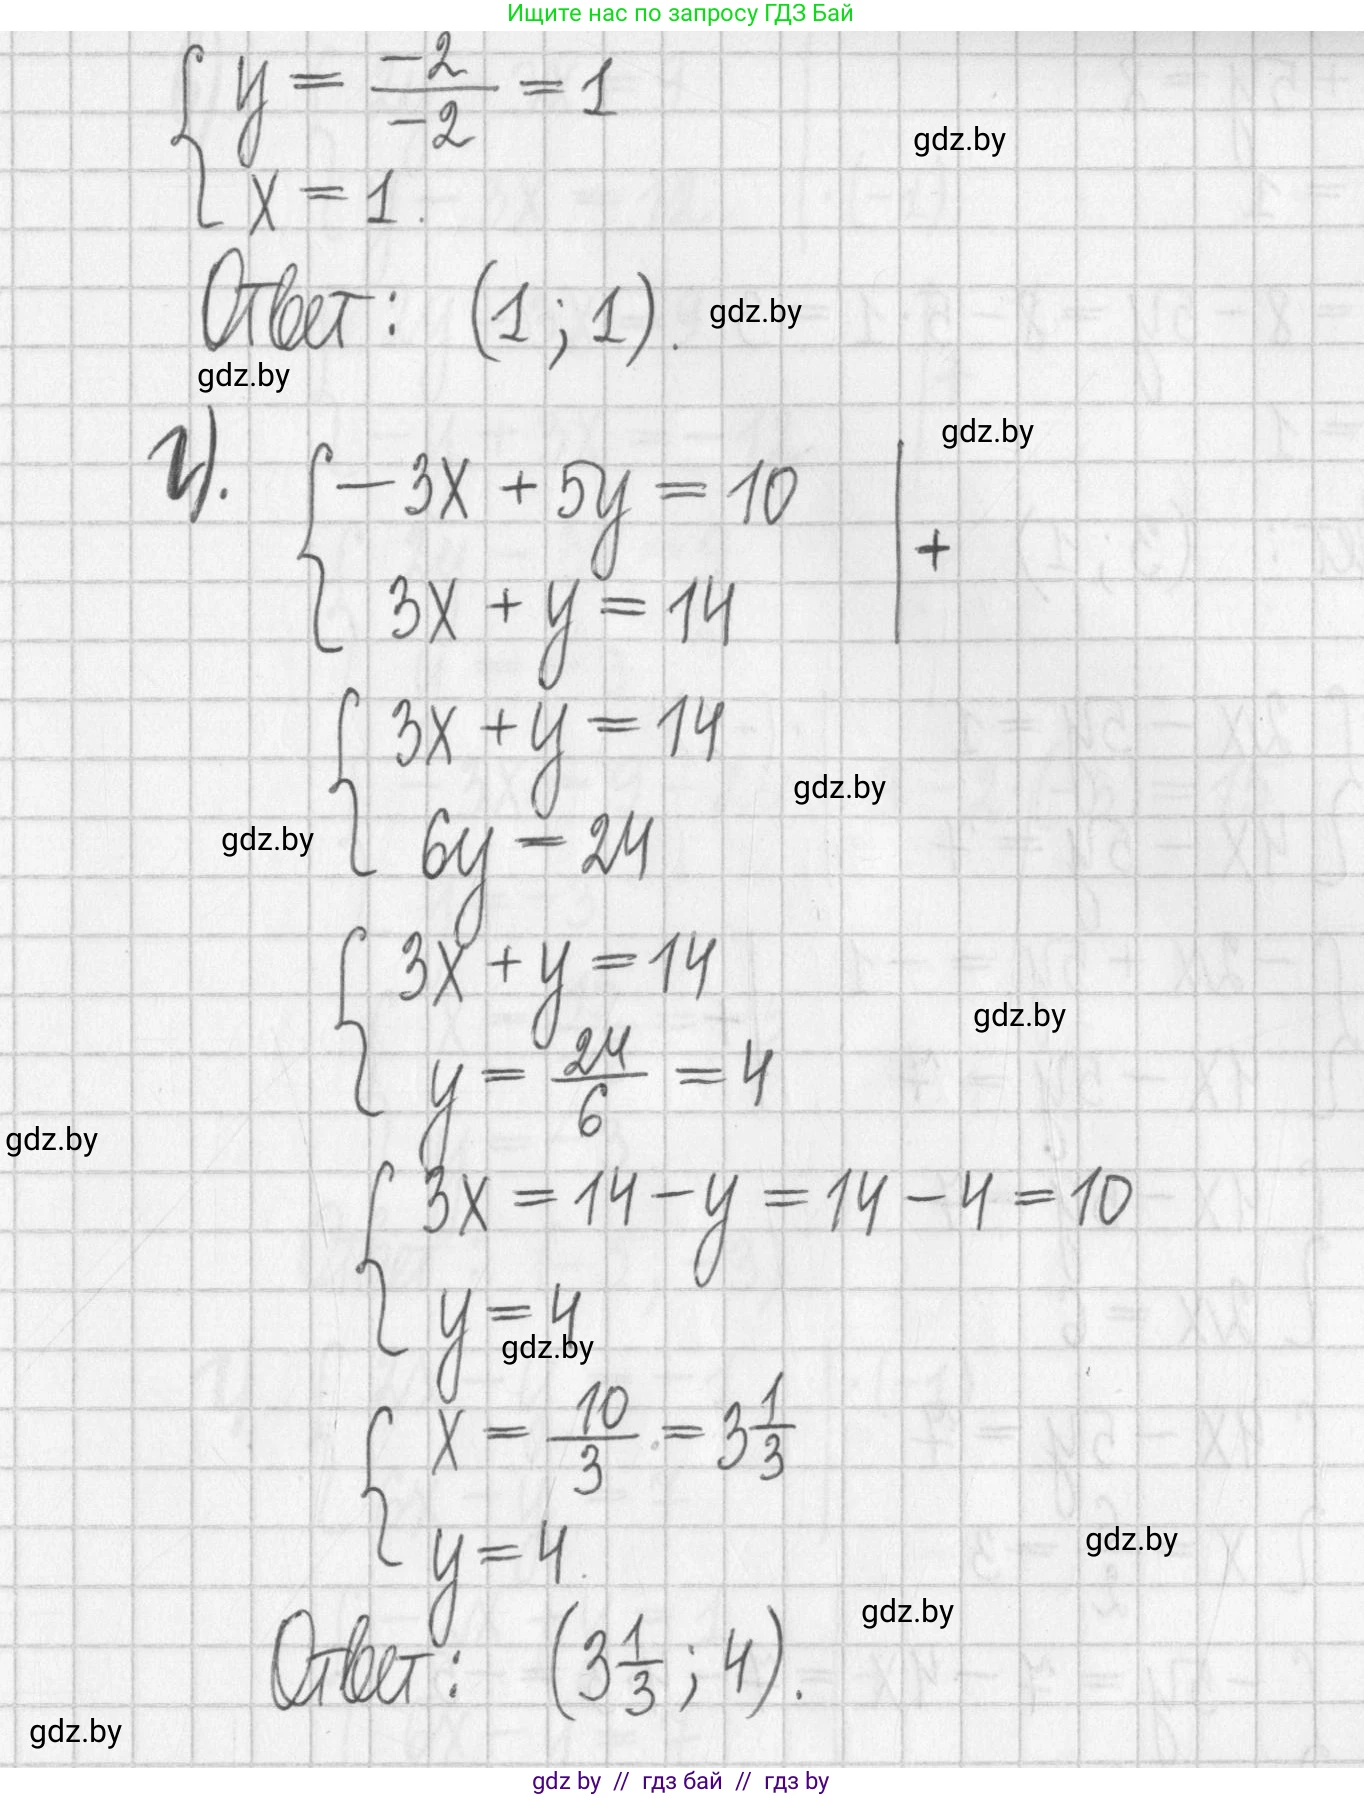 Ищите нас по запросу ГДЗ Бай
y = -2/-2 = 1
x = 1.
gdz.by
Ответ: (1 ; 1).
gdz.by
gdz.by
г).
gdz.by
-3x + 5y = 10
3x + y = 14
+
3x + y = 14
gdz.by
6y = 24
gdz.by
3x + y = 14
gdz.by
y = 24/6 = 4
gdz.by
3x = 14 - y = 14 - 4 = 10
y = 4
gdz.by
x = 10/3 = 3 1/3
y = 4.
gdz.by
gdz.by
Ответ: (3 1/3 ; 4).
gdz.by
gdz by // гдз бай // гдз by